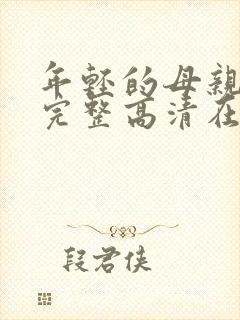 年轻的母親
完整高清在
段君侠